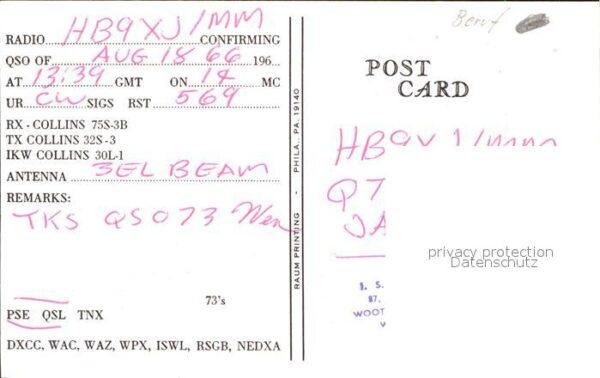 RADIO HB9XJ/MM CONFIRMING
QSO OF AUG 18 66 196
AT 13:39 GMT ON 14 MC
UR CW SIGS RST 569
RX - COLLINS 75S-3B
TX COLLINS 32S-3
IKW COLLINS 30L-1
ANTENNA 3EL BEAM
REMARKS:
TKS QSO 73
73's
PSE QSL TNX
DXCC, WAC, WAZ, WPX, ISWL, RSGB, NEDXA
RAUM PRINTING - PHILA. PA. 19140
POST
CARD
Q7
JA
privacy protection
Datenschutz
87,
WOOT